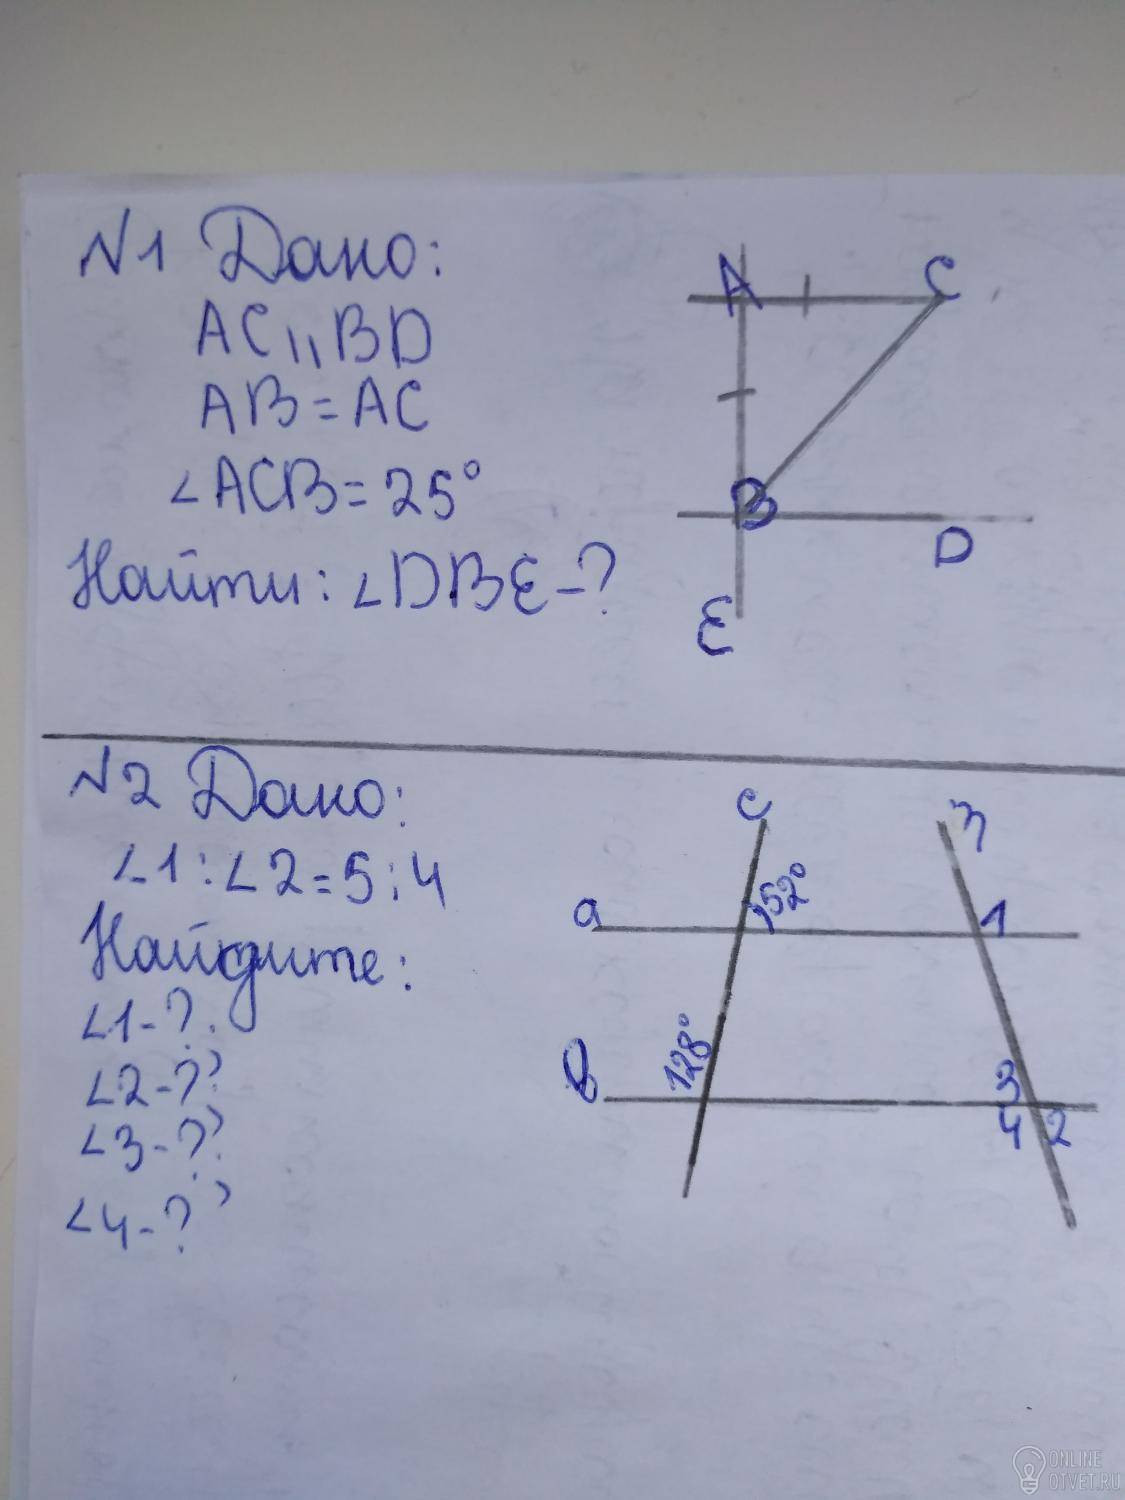 №1 Дано:
AC || BD
AB = AC
∠ACB = 25°
Найти: ∠DBE - ?
A
C
B
D
E
№2 Дано:
∠1 : ∠2 = 5 : 4
Найдите:
∠1 - ?
∠2 - ?
∠3 - ?
∠4 - ?
c
a
52°
1
128°
3
4
2
ONLINE
OTVET.RU